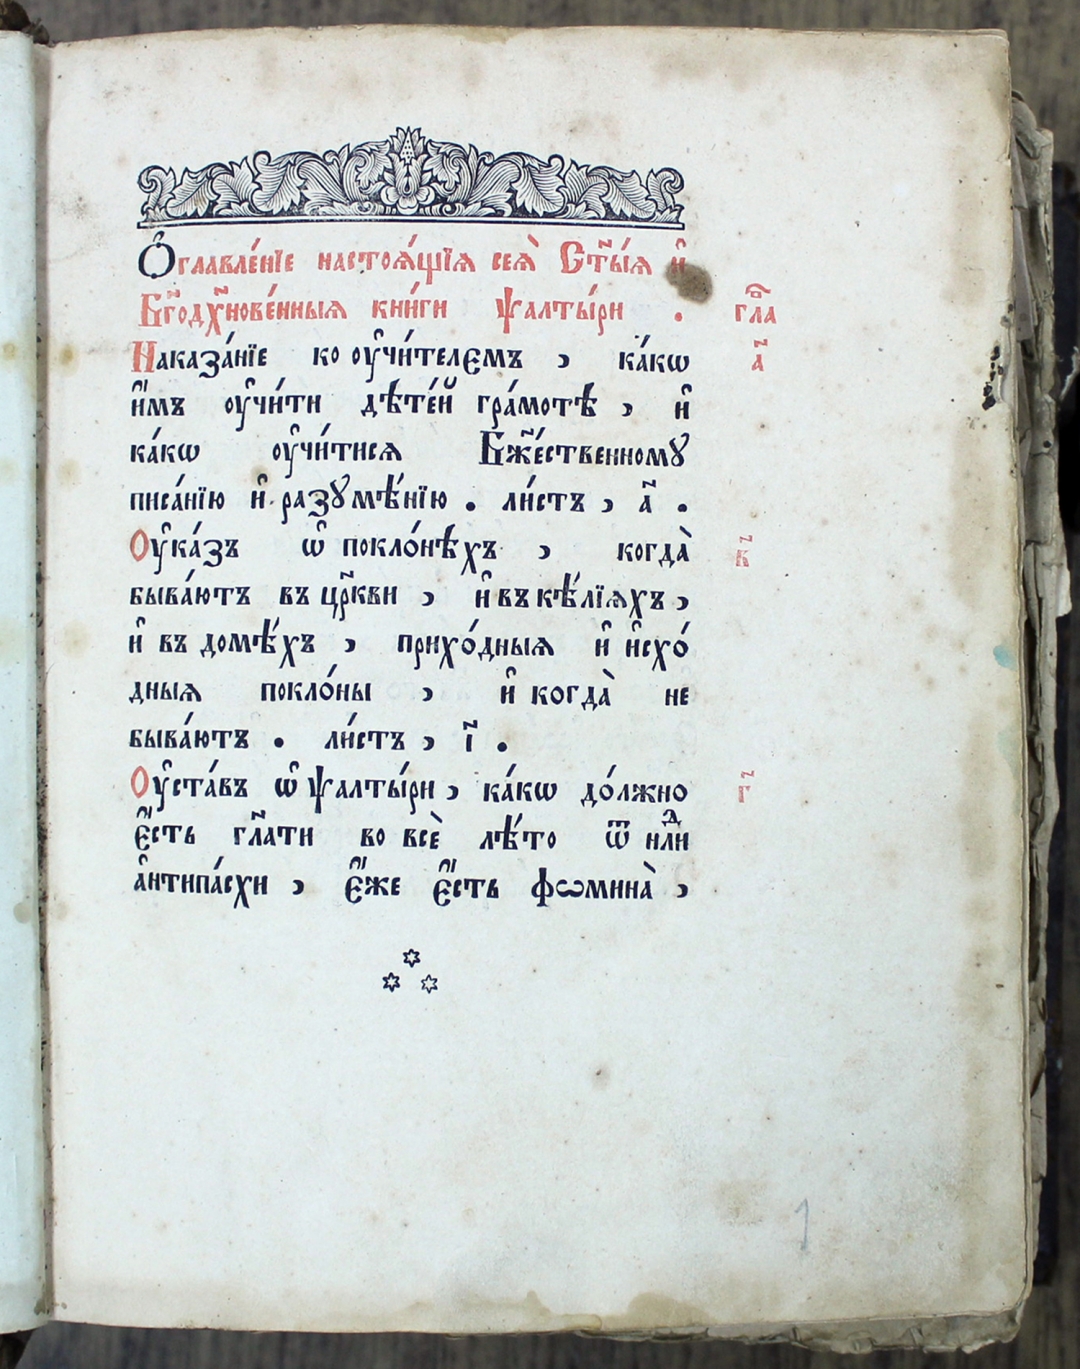 Ѻ҆главле́нїе настоѧ́щїѧ сеѧ̀ Ст҃ы́ѧ и҆
Бг҃одꙋ҇хнове́нныѧ кни́ги ѱалты́ри . гла̑
Наказа́нїе ко оу҆чи́телемъ , ка́кѡ а҃
и҆̀мъ оу҆чи́ти дѣте́й гра́мотѣ , и҆
ка́кѡ оу҆чи́тисѧ Бж҃е́ственномꙋ
писа́нїю и҆ разꙋмѣ́нїю . ли́стъ , а҃ .
Оу҆ка́зъ ѡ҆ покло́нѣхъ , когда̀ в҃
быва́ютъ въ цр҃кви , и҆ въ кѣ́лїѧхъ ,
и҆ въ домѣ́хъ , прихо́дныѧ и҆ и҆схо́
дныѧ покло́ны , и҆ когда̀ не
быва́ютъ . ли́стъ , і҃ .
Оу҆ста́въ ѡ҆ ѱалты́ри , ка́кѡ до́лжно г҃
є҆́сть гл҃ати во всѐ лѣ́то ѿ нлⷣи
а҆нтипа́схи , є҆́же є҆́сть ѳѡмина̀ ,
1